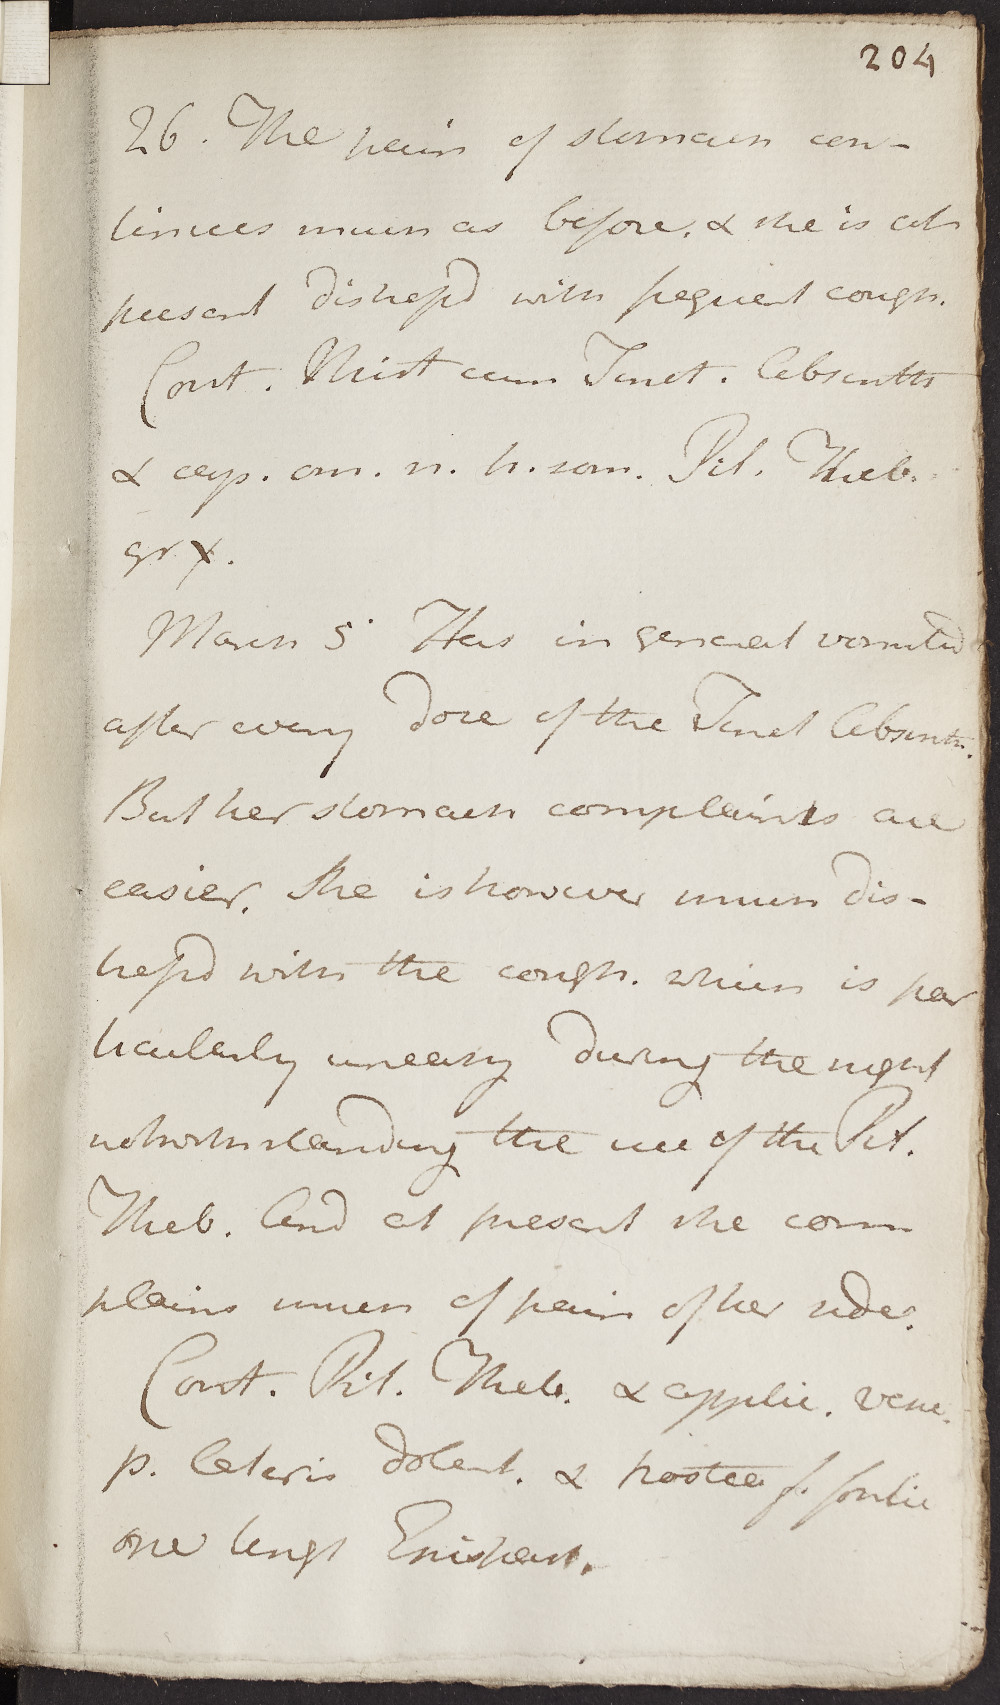 204
26. The pain of stomach con-
tinues much as before, & she is at
present distress'd with frequent cough.
Cont. Mist cum Tinct. Absinth
& cap. om. n. h. som. Pil. Theb.
gr X.
March 5 Has in general vomited
after every dose of the Tinct Absinth.
But her stomach complaints are
easier. She is however much dis-
tress'd with the cough. which is par
ticularly uneasy during the night
notwithstanding the use of the Pil.
Theb. And at present she com
plains much of pain of her side.
Cont. Pil. Theb. & applic. vesic.
p. lateris dolent. & postea f. fontic
one ungt Epispast.